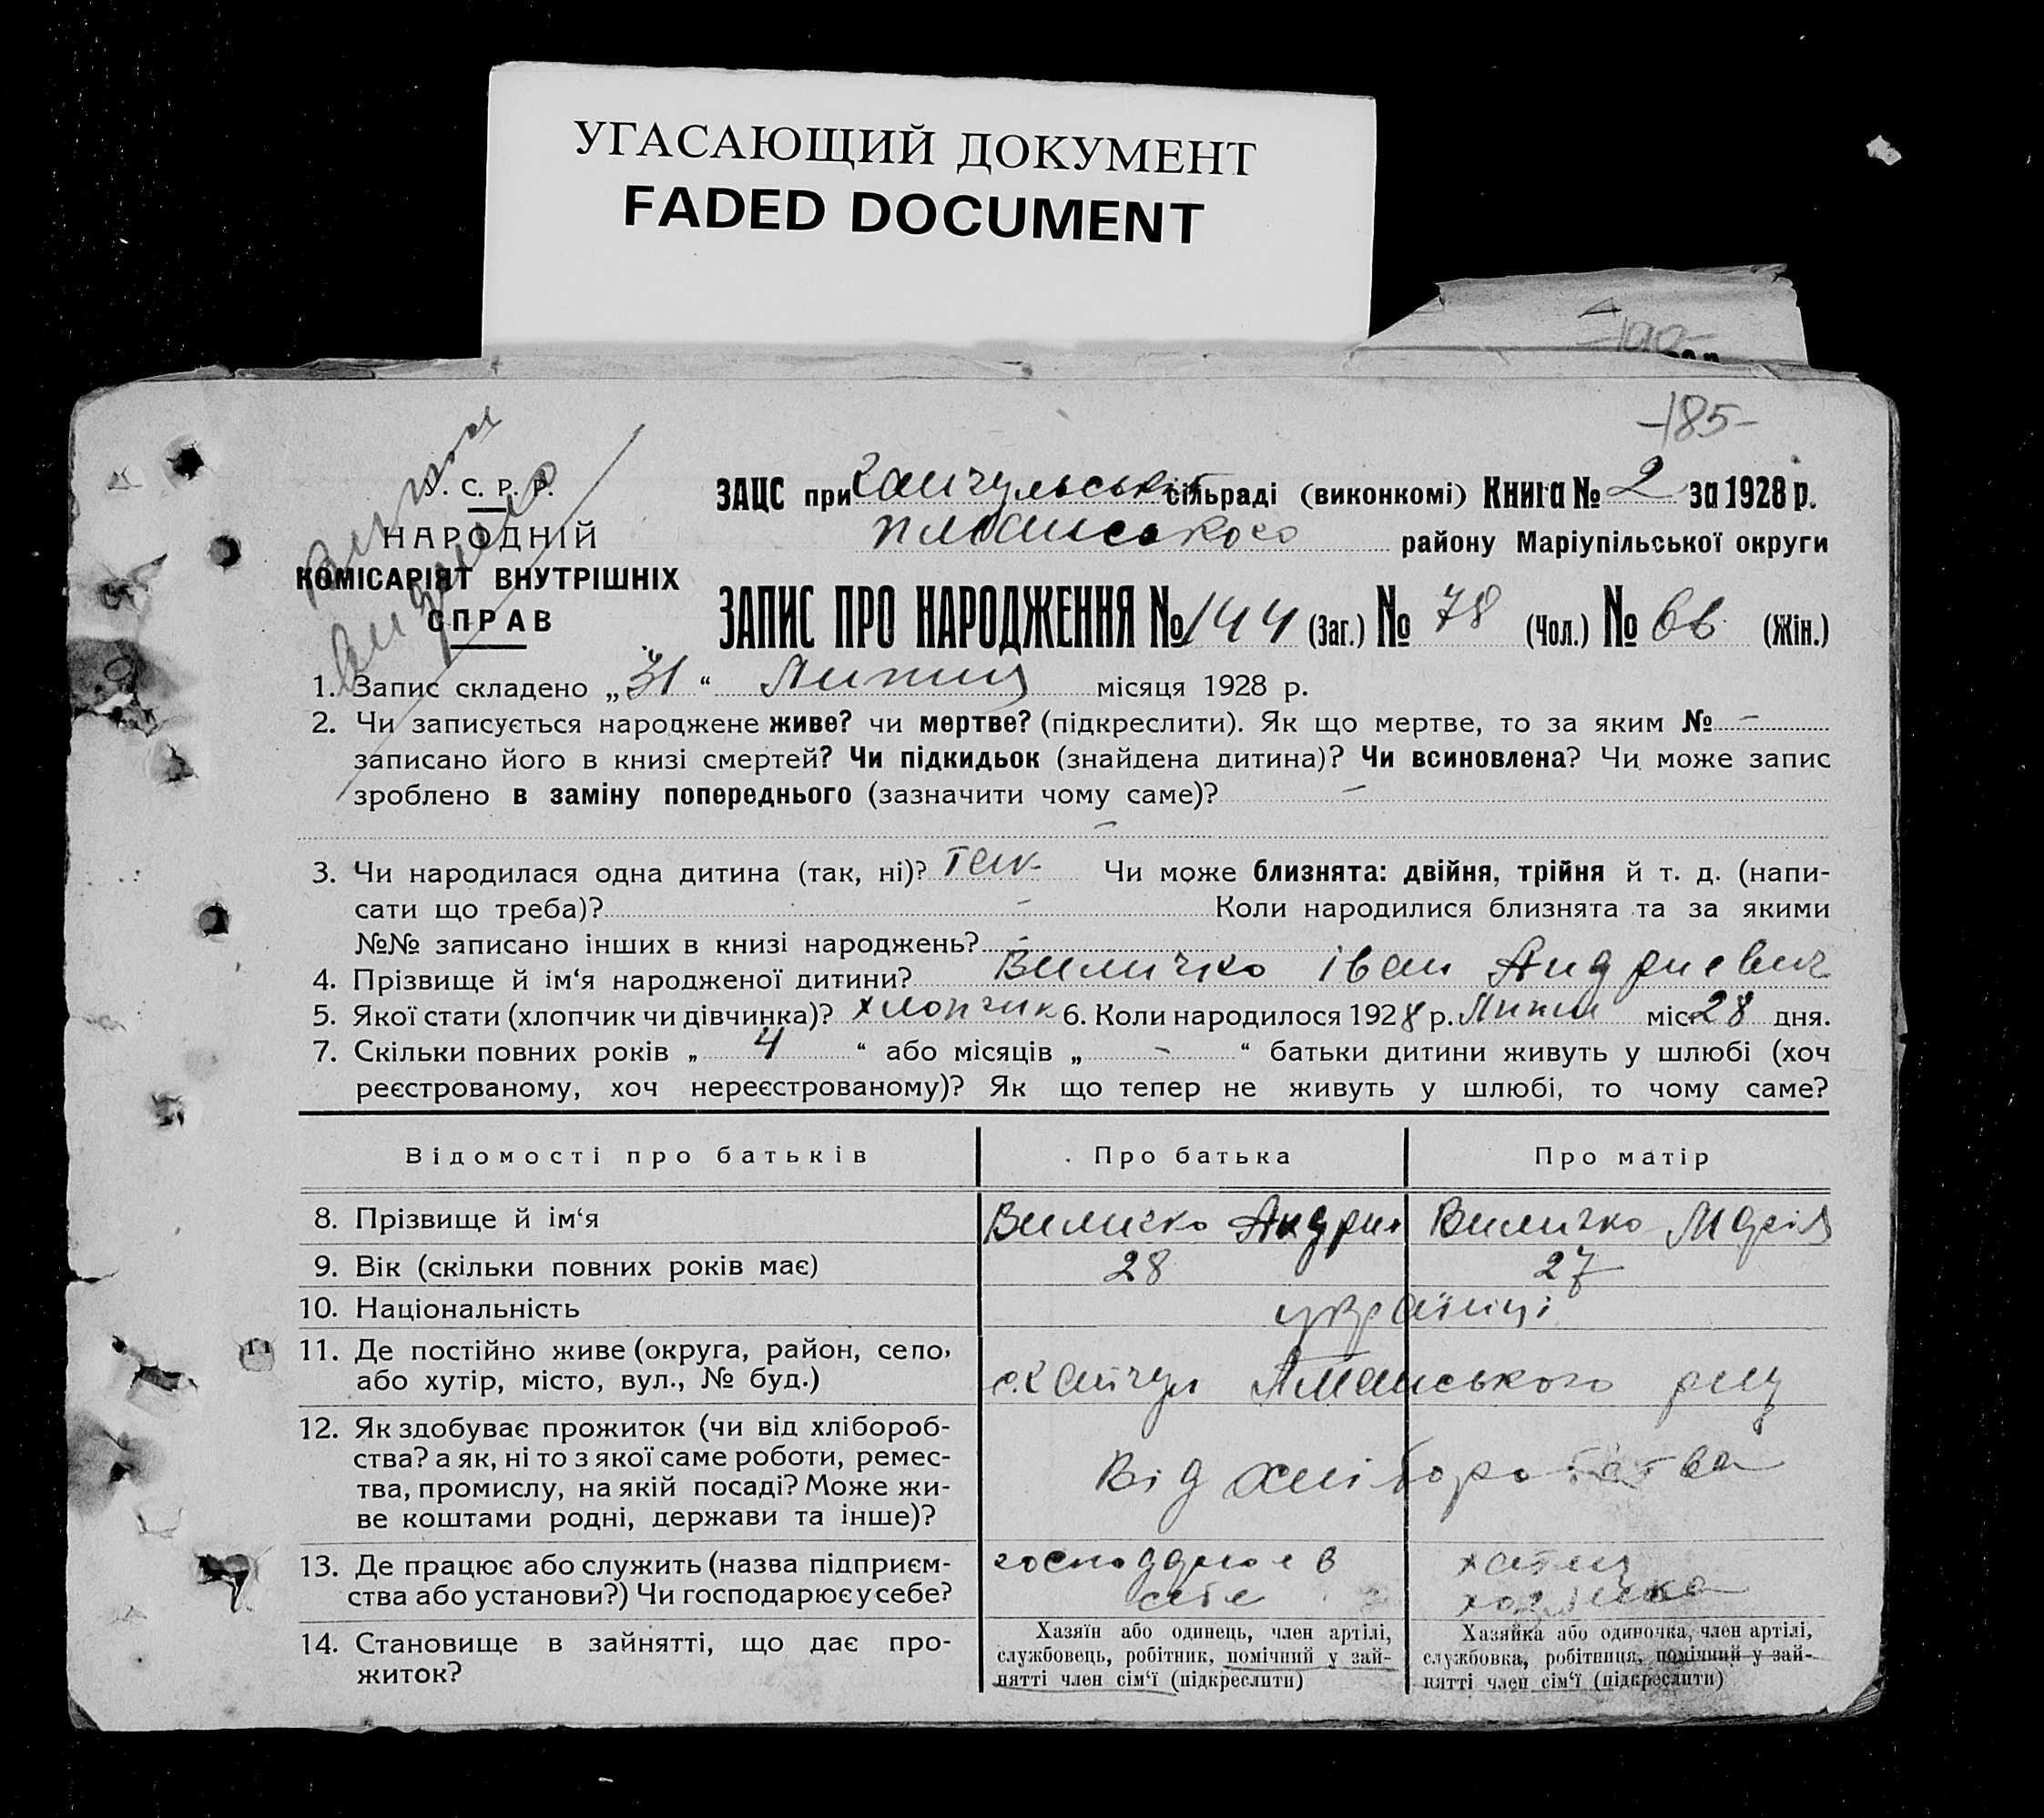 УГАСАЮЩИЙ ДОКУМЕНТ
FADED DOCUMENT
-190-
-185-
У. С. Р. Р.
НАРОДНІЙ
КОМІСАРІЯТ ВНУТРІШНІХ
СПРАВ
ЗАЦС при Гайчульській сільраді (виконкомі) Книга № 2 за 1928 р.
району Маріупільської округи
ЗАПИС ПРО НАРОДЖЕННЯ № 144 (Заг.) № 78 (Чол.) № 66 (Жін.)
1. Запис складено „31“ Липня місяця 1928 р.
2. Чи записується народжене живе? чи мертве? (підкреслити). Як що мертве, то за яким № -
записано його в книзі смертей? Чи підкидьок (знайдена дитина)? Чи всиновлена? Чи може запис
зроблено в заміну попереднього (зазначити чому саме)? -
-
3. Чи народилася одна дитина (так, ні)? так Чи може близнята: двійня, трійня й т. д. (напи-
сати що треба)? - Коли народилися близнята та за якими
№№ записано інших в книзі народжень? -
4. Прізвище й ім‘я народженої дитини? Виличко Іван Андриевич
5. Якої стати (хлопчик чи дівчинка)? хлопчик 6. Коли народилось 1928 р. Липня міс. 28 дня.
7. Скільки повних років „ 4 “ або місяців „ - “ батьки дитини живуть у шлюбі (хоч
реєстрованому, хоч нереєстрованому)? Як що тепер не живуть у шлюбі, то чому саме?
Відомості про батьків Про батька Про матір
8. Прізвище й ім‘я Виличко Андрий Виличко Марія
9. Вік (скільки повних років має) 28 27
10. Національність українці
11. Де постійно живе (округа, район, село,
або хутір, місто, вул., № буд.) с. Гайчул
12. Як здобуває прожиток (чи від хлібороб-
ства? а як, ні то з якої саме роботи, ремес-
тва, промислу, на якій посаді? Може жи-
ве коштами родні, держави та інше)?
Від хліборобства
13. Де працює або служить (назва підприєм-
ства або установи?) Чи господарює у себе?
господарює в
себе
хатня
хазяйка
14. Становище в зайнятті, що дає про-
житок?
Хазяїн або одинець, член артілі,
службовець, робітник, помічний у зай-
нятті член сім‘ї (підкреслити)
Хазяйка або одиночка, член артілі,
службовка, робітниця, помічний у зай-
нятті член сім‘ї (підкреслити)